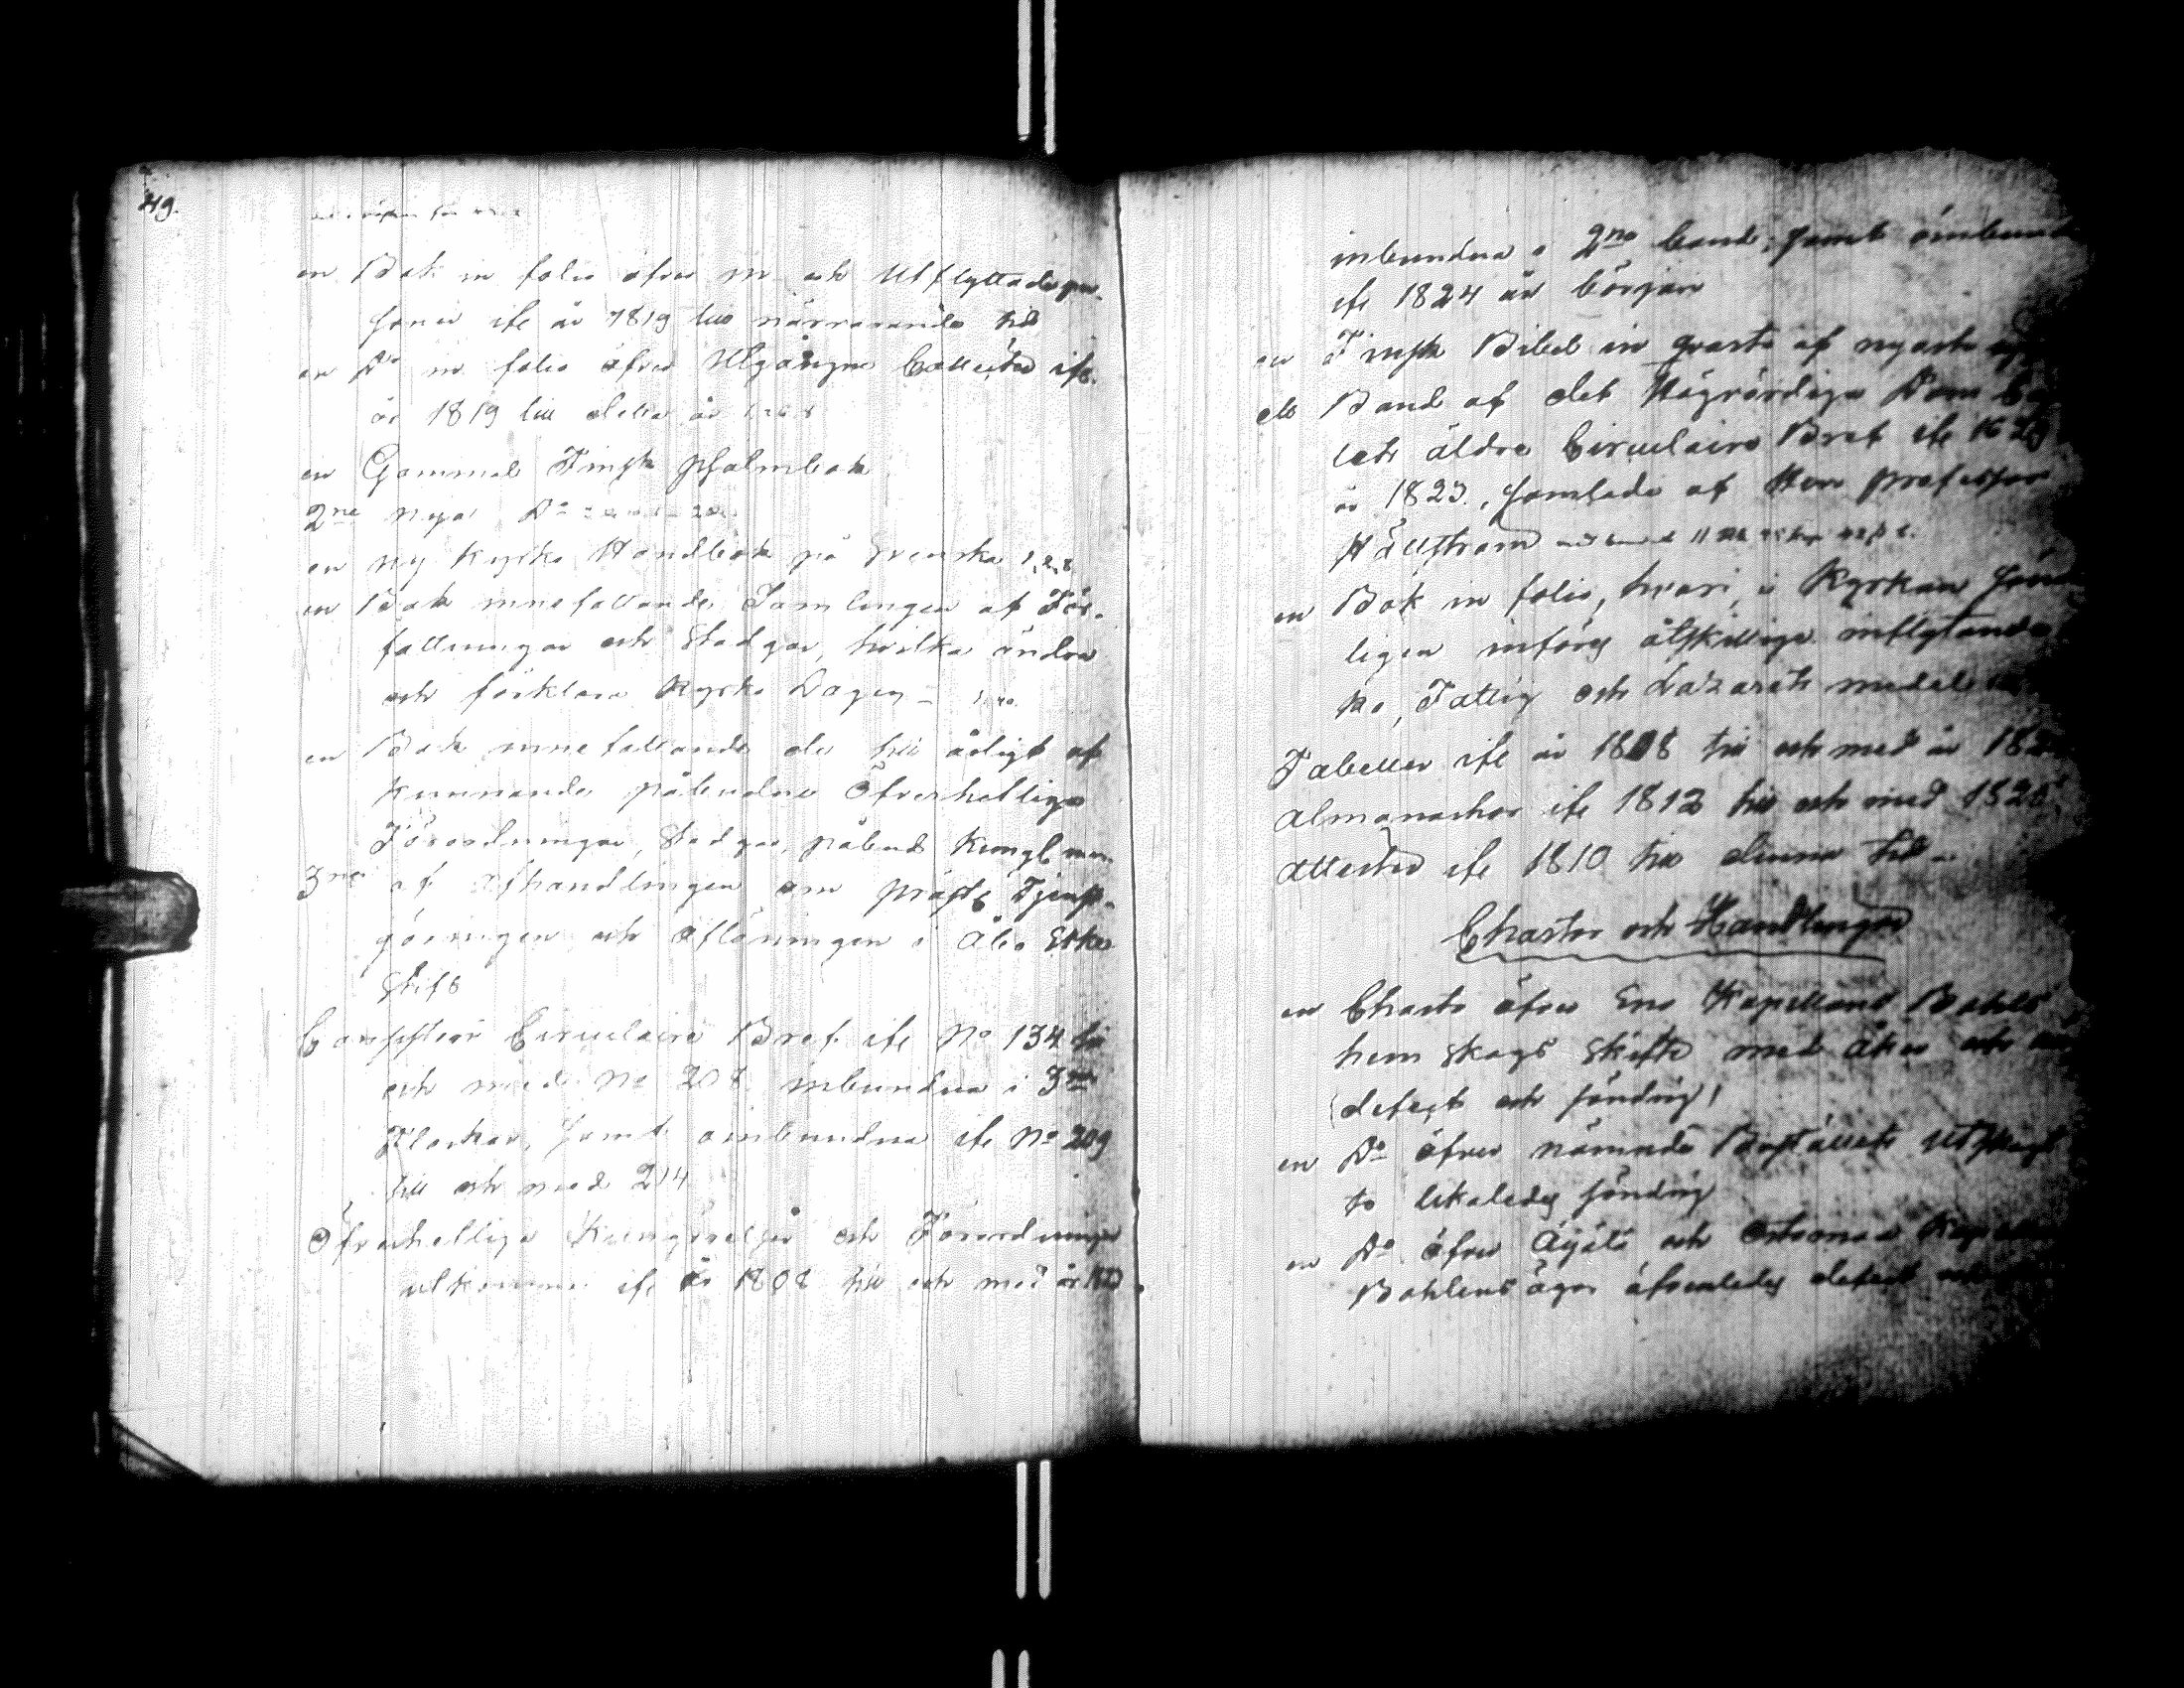 219.
en Bok in folio öfver in och Utflyttade per-
soner ifr. år 1819 till närvarande tid
en Do in folio öfver Utgångne Attester ifr.
år 1819 till detta år
en Gammal Finsk Psalmbok
2ne nya Do
en ny Kyrko Handbok på Svenska
en Bok innefattande Samlingen af För-
fattningar och Stadgar, hvilka ändra
och förklara Kyrko Lagen –
en Bok innefattande de till årligt af
kunnande påbudne Öfverhetliga
Förordningar, Stadgar, påbud
3ne af Afhandlingen om Prests Tjenst-
göringen och aflöningen i Åbo Erke
Stift
Consistorii Circulaire Bref ifr No 134 till
och med No 208 inbundna i 3ne
Flockar, samt oinbundna ifr No 209
till och med 214
Öfverhetliga Kungörelser och Förordningar
utkomne ifr år 1808 till och med år
inbundna i 2ne band; samt oinbundna
ifr 1824 års början
en Finsk Bibel in qvarto af nyaste
ett Band af det Högvördiga Dom
lets äldre Circulaire Bref ifr
år 1823, samlade af Herr Professor
Hällström
en Bok in folio, hvari, i Kyrkan
ligen införes åtskillige inflytande
ko, Fattig och Lazarets medel
Tabeller ifr år 1808 till och med år
Almanachor ifr 1812 till och med 1828
Attester ifr 1810 till denna tid –
Chartor och Handlingar
en Charta öfver Eno Kapellans Bohls
hem skogs skifte med åker och
defect och söndrig
en Do öfver nämnde Boställets
to likaledes söndrig
en Do öfver och
Bohlens ägor äfvenledes defect